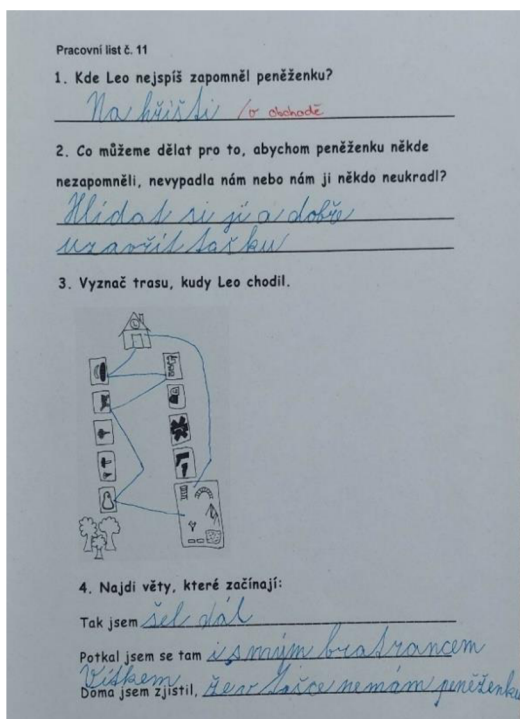 Pracovní list č. 11
1. Kde Leo nejspíš zapomněl peněženku?
Na hřišti /v obchodě
2. Co můžeme dělat pro to, abychom peněženku někde
nezapomněli, nevypadla nám nebo nám ji někdo neukradl?
Hlídat si jí a dobře
uzavřít tašku
3. Vyznač trasu, kudy Leo chodil.
4. Najdi věty, které začínají:
Tak jsem šel dál
Potkal jsem se tam i s mým bratrancem
Vítkem
Doma jsem zjistil, že v tašce nemám peněženku